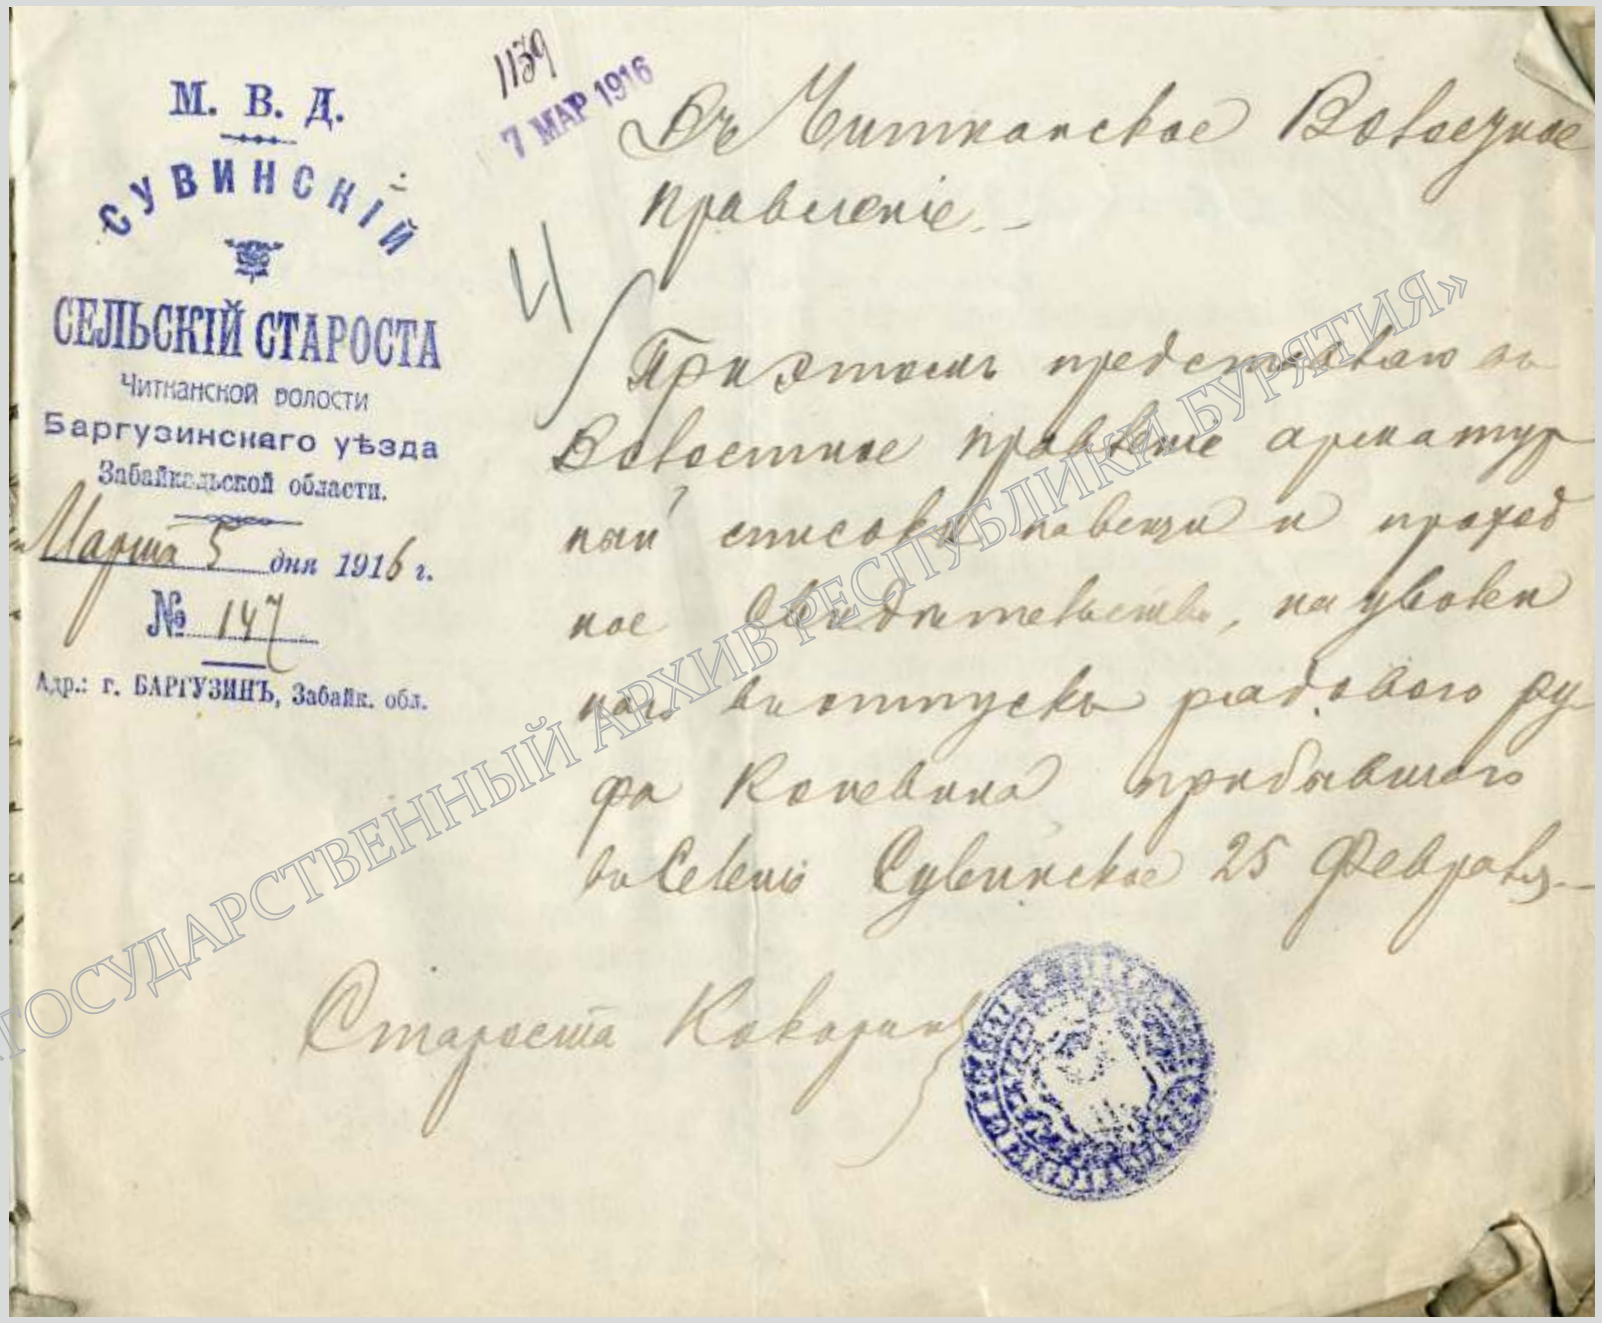 М. В. Д.
СУВИНСКІЙ
СЕЛЬСКІЙ СТАРОСТА
Читканской волости
Баргузинскаго уѣзда
Забайкальской области.
Марта 5 дня 1916 г.
№ 147
Адр.: г. БАРГУЗИНЪ, Забайк. обл.
1139
7 МАР 1916
Въ Читканское Волосное
правленіе.
При этомъ представляю въ
Волостное правленіе арматур
ный списокъ и проход
ное свидѣтельство, на уволен
наго въ отпускъ рядового Ру
фа Коневина прибывшаго
въ Селеніе Сувинское 25 Февраля.
Староста Коворин
ГОСУДАРСТВЕННЫЙ АРХИВ РЕСПУБЛИКИ БУРЯТИЯ»